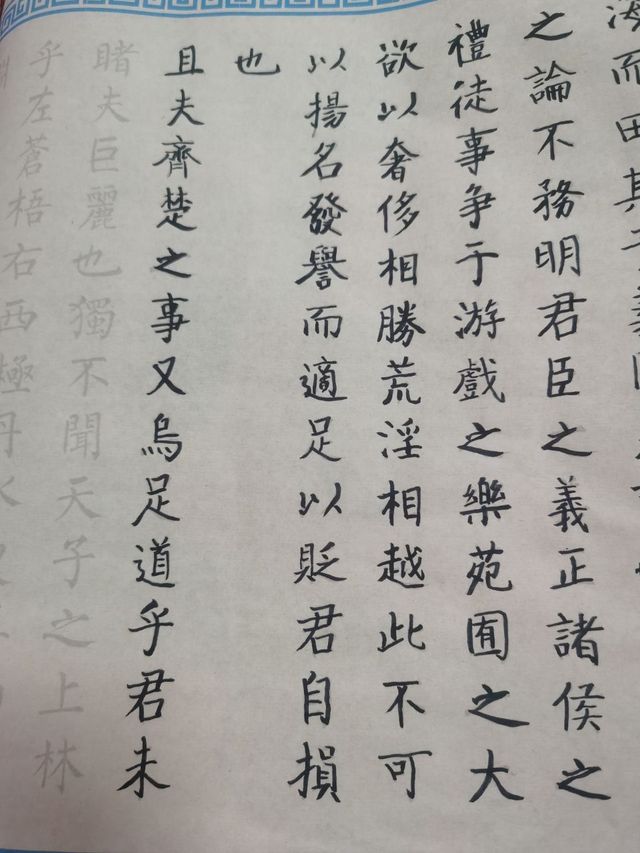 海而田其于義固
之論不務明君臣之義正諸侯之
禮徒事争于游戲之樂苑囿之大
欲以奢侈相勝荒淫相越此不可
以揚名發譽而適足以貶君自損
也
且夫齊楚之事又烏足道乎君未
睹夫巨麗也獨不聞天子之上林
乎左蒼梧右西極丹水